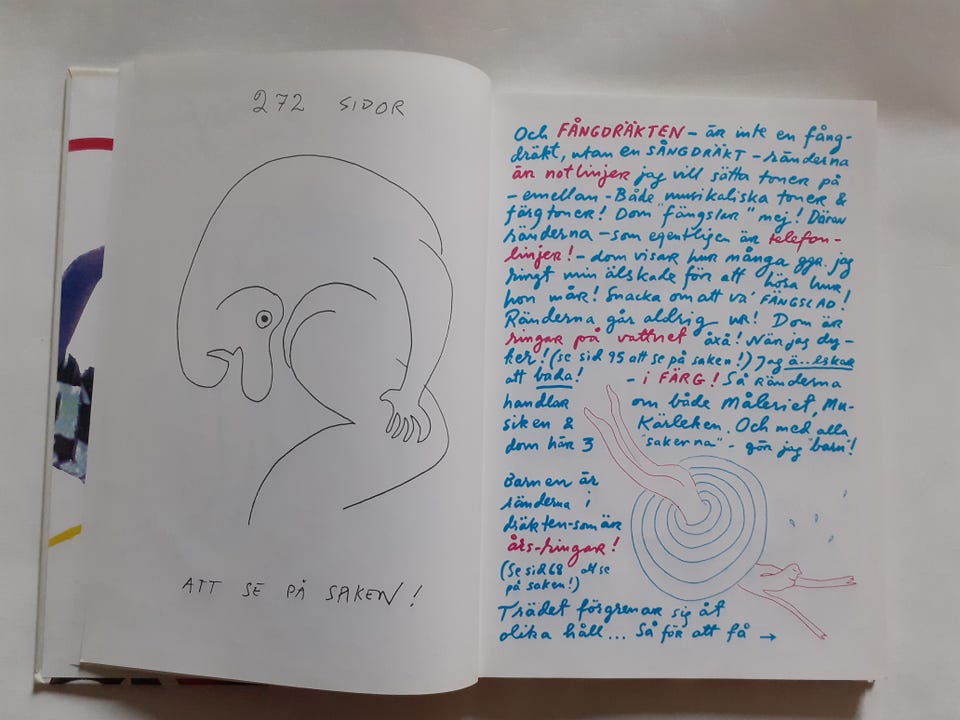 272 SIDOR
ATT SE PÅ SAKEN!
Och FÅNGDRÄKTEN – är inte en fång-
dräkt, utan en SÅNGDRÄKT – ränderna
är notlinjer jag vill sätta toner på
– emellan – Både musikaliska toner &
färgtoner! Dom "fängslar" mej! Därav
ränderna – som egentligen är telefon-
linjer! – dom visar hur många ggr. jag
ringt min älskade för att höra hur
hon mår! Snacka om att va' FÄNGSLAD!
Ränderna går aldrig ur! Dom är
ringar på vattnet åxå! När jag dy-
ker! (se sid 95 att se på saken!) Jag ä..lskar
att bada! – i FÄRG! Så ränderna
handlar om både Måleriet, Mu-
siken & Kärleken. Och med alla
dom här 3 "sakerna" – gör jag "barn"!
Barnen är
ränderna i
dräkten – som är
års-ringar!
(Se sid 68 att se
på saken!)
Trädet förgrenar sig åt
olika håll... Så för att få →